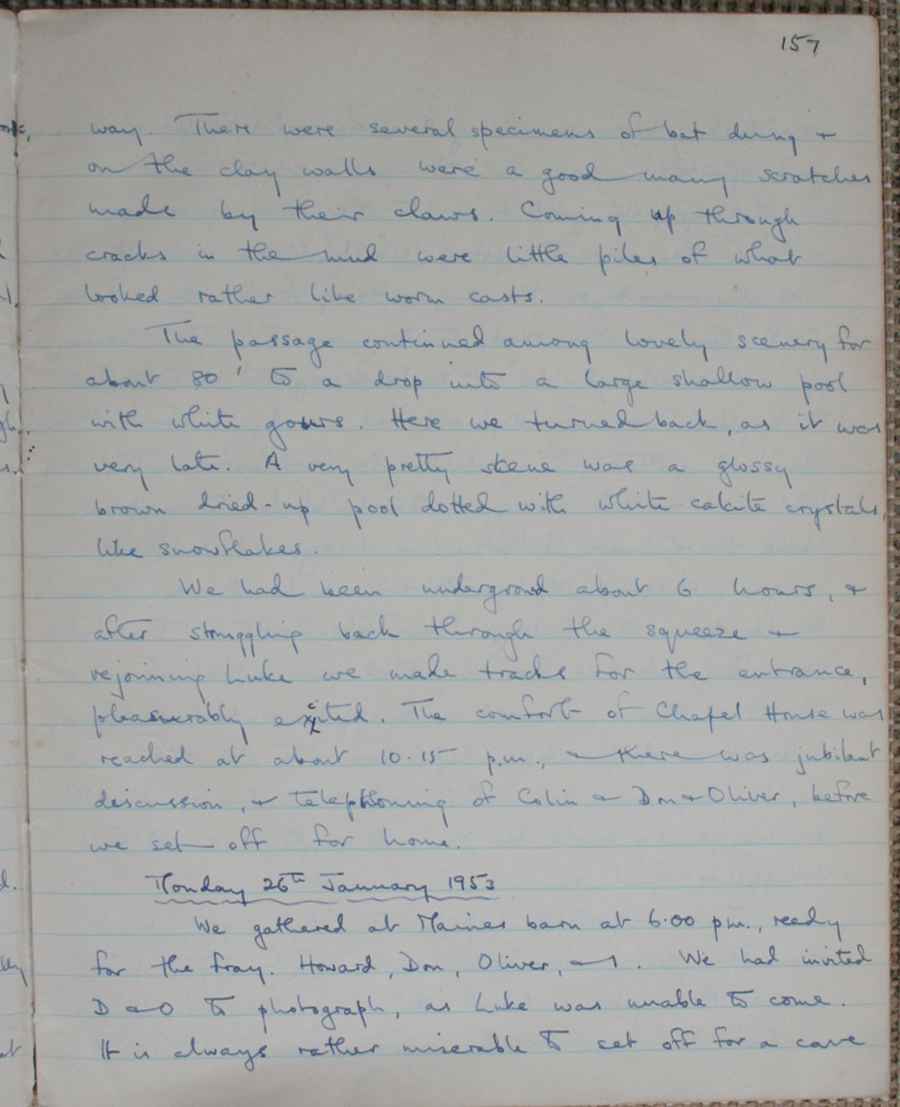 157
way. There were several specimens of bat dung &
on the clay walls were a good many scratches
made by their claws. Coming up through
cracks in the mud were little piles of what
looked rather like worm casts.
The passage continued among lovely scenery for
about 80' to a drop into a large shallow pool
with white gours. Here we turned back, as it was
very late. A very pretty scene was a glossy
brown dried-up pool dotted with white calcite crystals,
like snowflakes.
We had been underground about 6 hours, &
after struggling back through the squeeze &
rejoining Luke we made tracks for the entrance,
pleasurably excited. The comfort of Chapel House was
reached at about 10.15 p.m., & there was jubilant
discussion, & telephoning of Colin & Don & Oliver, before
we set off for home.
Monday 26th January 1953
We gathered at Maines barn at 6.00 p.m., ready
for the fray. Howard, Don, Oliver, & I. We had invited
D & O to photograph, as Luke was unable to come.
It is always rather miserable to set off for a cave